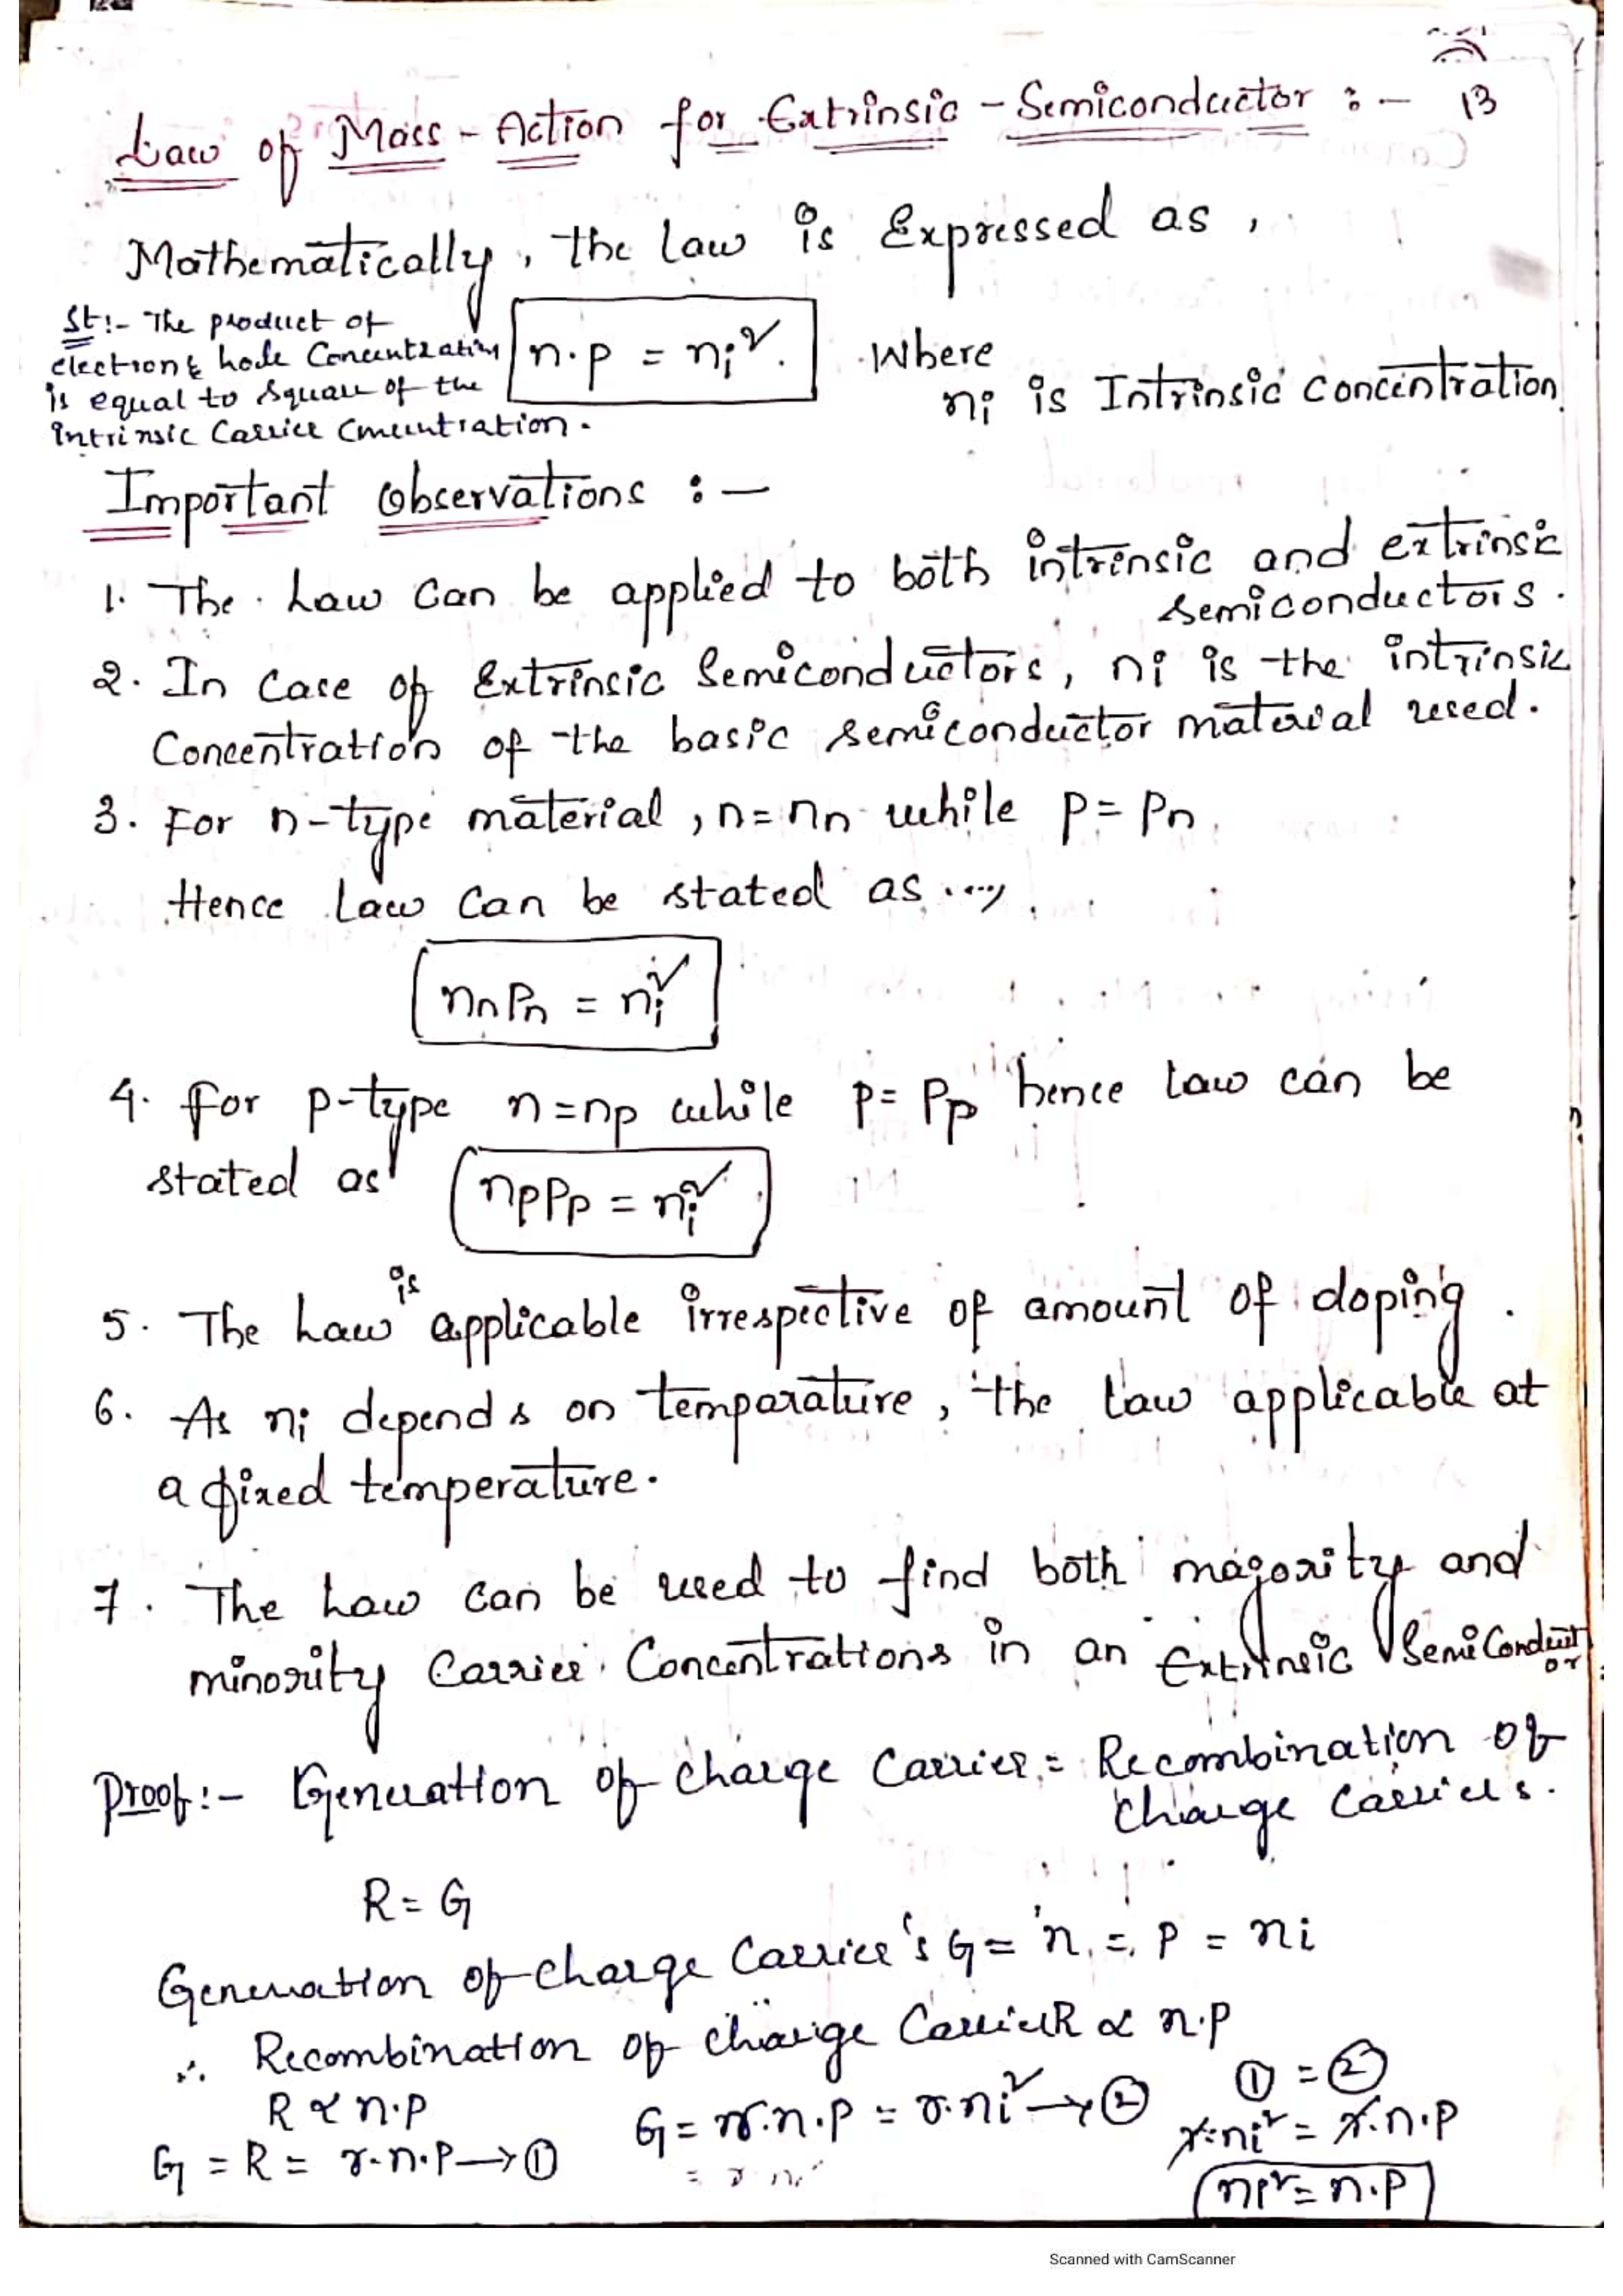 Law of Mass - Action for Extrinsic - Semiconductor : - 13
Mathematically, the law is Expressed as,
St:- The product of
electron & hole Concentration
is equal to square of the
intrinsic Carrier Concentration.
n.p = ni². Where
ni is Intrinsic concentration
Important Observations : —
1. The Law can be applied to both intrinsic and extrinsic
semiconductors.
2. In case of Extrinsic Semiconductors, ni is the intrinsic
Concentration of the basic semiconductor material used.
3. For n-type material, n = nn while p = Pn
Hence Law can be stated as ...,
nnPn = ni²
4. for p-type n = np while p = Pp hence law can be
stated as npPp = ni²
5. The Law is applicable irrespective of amount of doping.
6. As ni depends on temparature, the law applicable at
a fixed temperature.
7. The Law can be used to find both majority and
minority Carrier Concentrations in an Extrinsic Semiconductor
Proof:- Generation of charge Carrier = Recombination of
Charge Carriers.
R = G
Generation of charge Carrier's G = n = P = ni
∴ Recombination of charge Carrier R ∝ n.p
R ∝ n.p
G = R = r.n.p → ①
G = r.n.p = r.ni² → ②
① = ②
r.ni² = r.n.p
ni² = n.p
Scanned with CamScanner